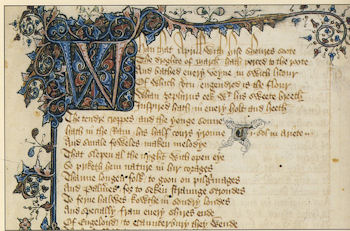 Whan that Aprill with his shoures soote
The droghte of march hath perced to the roote
And bathed euery veyne in swich licour
Of which vertu engendred is the flour
Whan zephirus eek wt his sweete breeth
Inspired hath in euery holt and heeth
The tendre croppes and the yonge sonne
hath in the Ram his half cours yronne sol in ariete
And smale foweles maken melodye
That slepen al the nyght with open eye
So priketh hem nature in hir corages
Thanne longen folk to goon on pilgrimages
And Palmeres for to seken straunge strondes
To ferne halwes kowthe in sondry londes
And specially from euery shires ende
Of Engelond to Caunterbury they wende